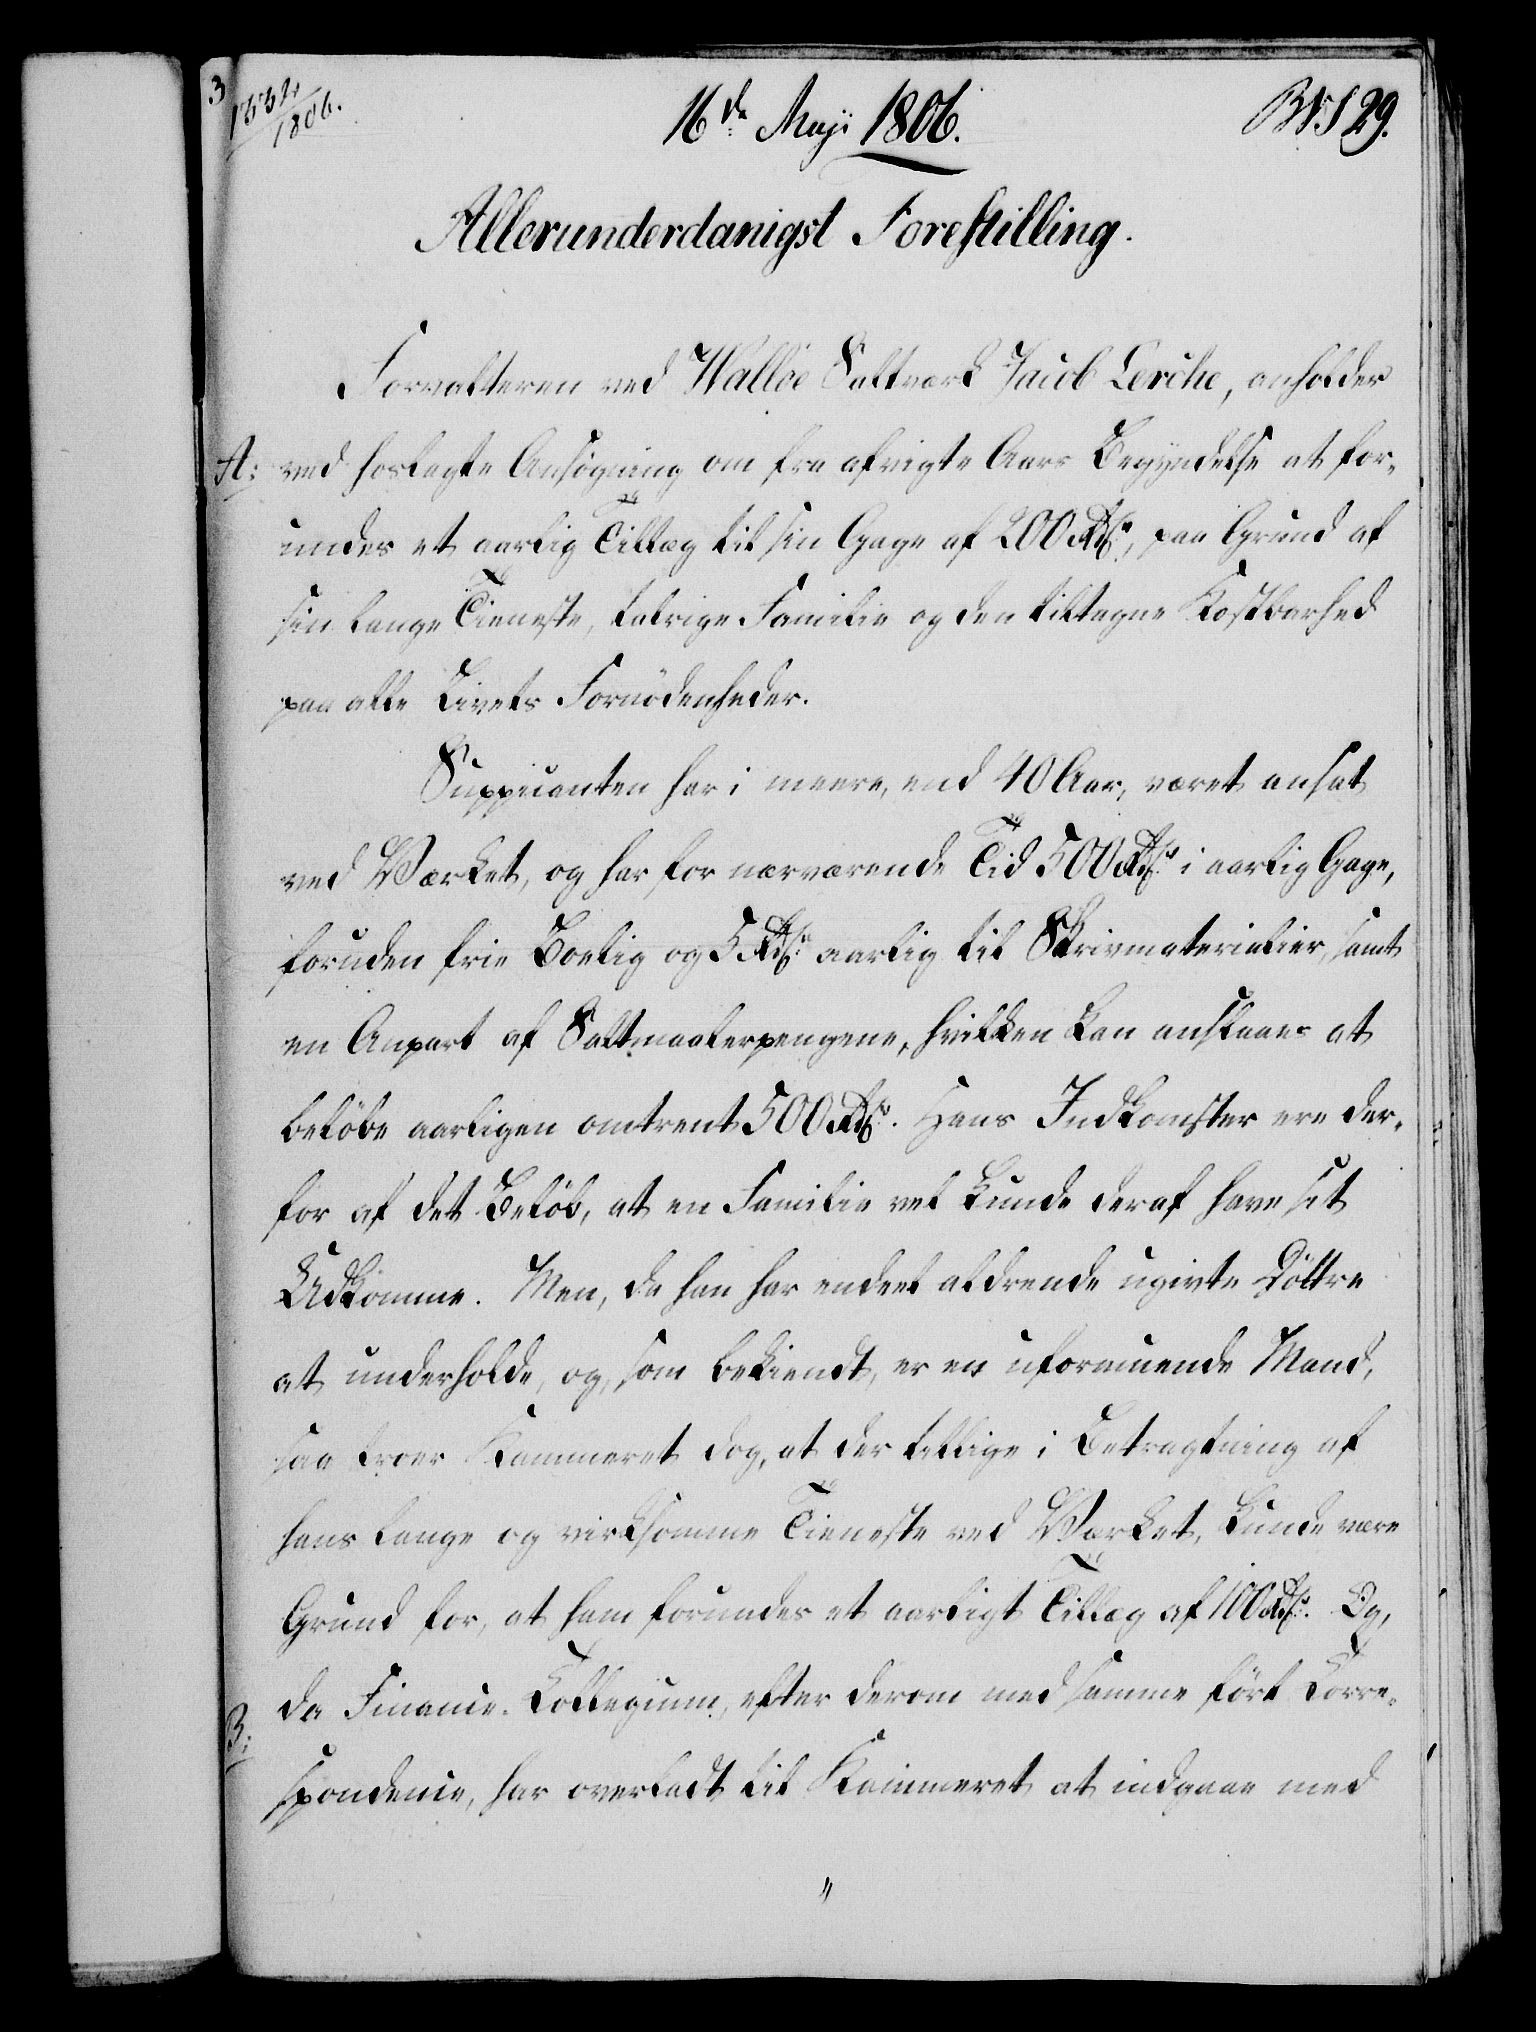 3
1832/1806.
16de Maji 1806.
No 29.
Allerunderdanigst Forestilling.
Forvalteren ved Walløe Saltværk Jacob Lerche, anholder
A: ved hoslagte Ansøgning om fra afvigte Aars Begyndelse at for-
undes et aarlig Tillæg til sin Gage af 200 Rdr, paa Grund af
sin lange Tieneste, talrige Familie og den tiltagne Kostbarhed
paa alle Livets Fornødenheder.
Supplicanten har i meere, end 40 Aar, været ansat
ved Værket, og har for nærværende Tid 500 Rdr i aarlig Gage,
foruden frie Boelig og 5 Rdr aarlig til Skrivmaterialier, samt
en Anpart af Saltmaalerpengene, hvilken kan anslaaes at
beløbe aarligen omtrent 500 Rdr. Hans Indkomster ere der-
for af det Beløb, at en Familie vel kunde deraf have sit
Udkomme. Men, da han har endeel aldrende ugivte Døttre
at underholde, og, som bekiendt, er en uformuende Mand,
saa troer Kammeret dog, at der tillige i Betragtning af
hans lange og virksomme Tieneste ved Værket, kunde være
Grund for, at ham forundes et aarligt Tillæg af 100 Rdr. Og,
da Finance-Collegium, efter derom med samme ført Corre-
B: spondence, har overladt til Kammeret at indgaae med
"